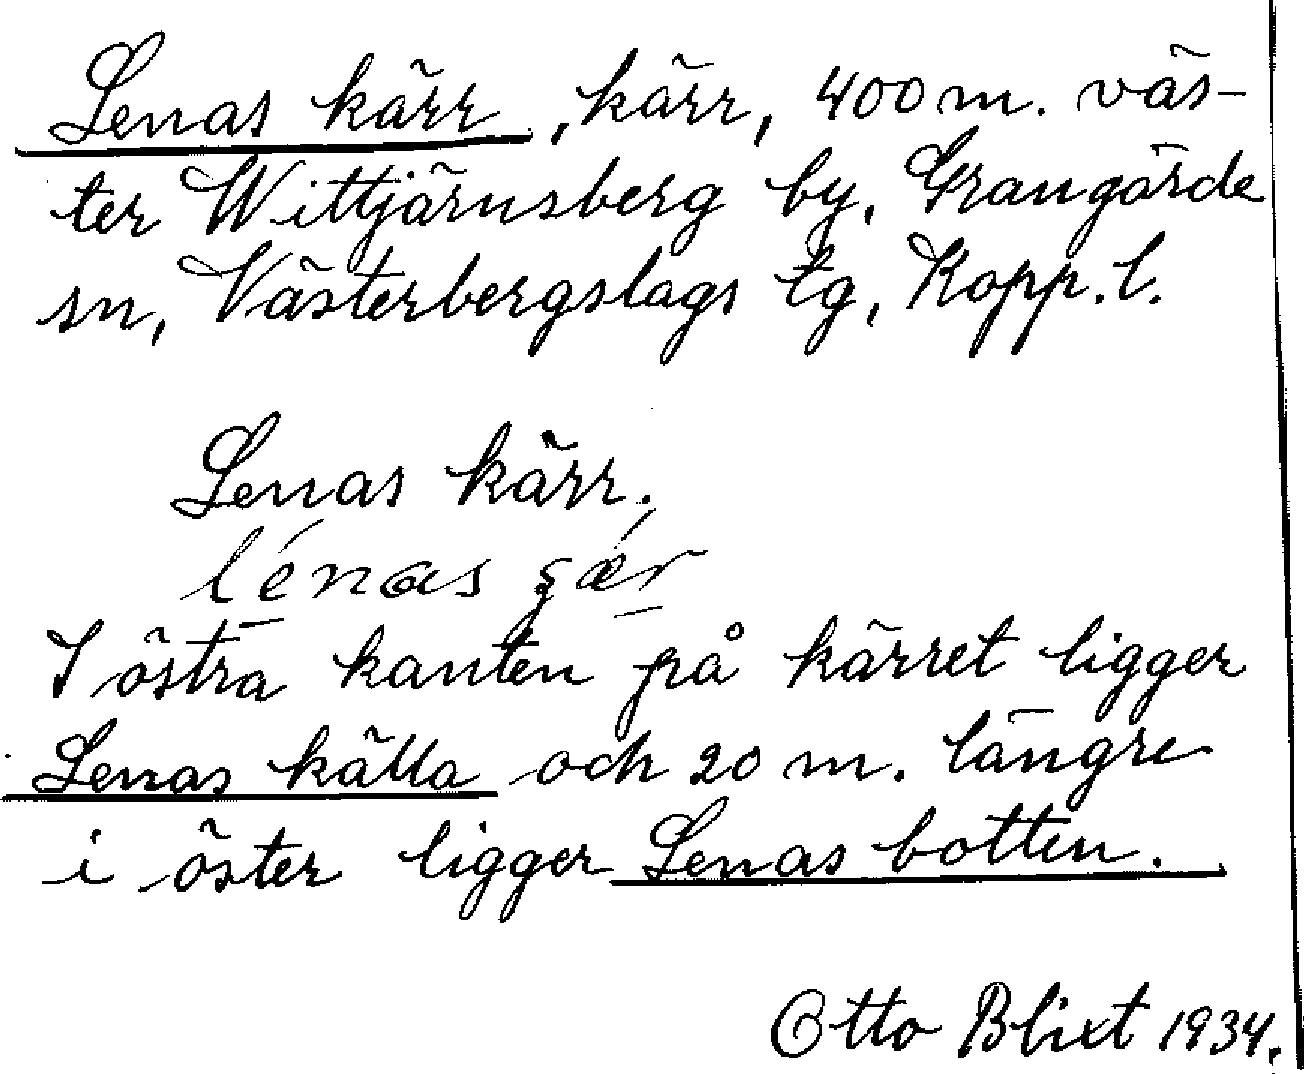 Lenas kärr, kärr, 400 m. väs-
ter Wittjärnsberg by, Grangärde
sn, Västerbergslags tg, Kopp. l.
Lenas kärr.
lénas
I östra kanten på kärret ligger
Lenas källa och 20 m. längre
i öster ligger Lenas botten.
Otto Blixt 1934.